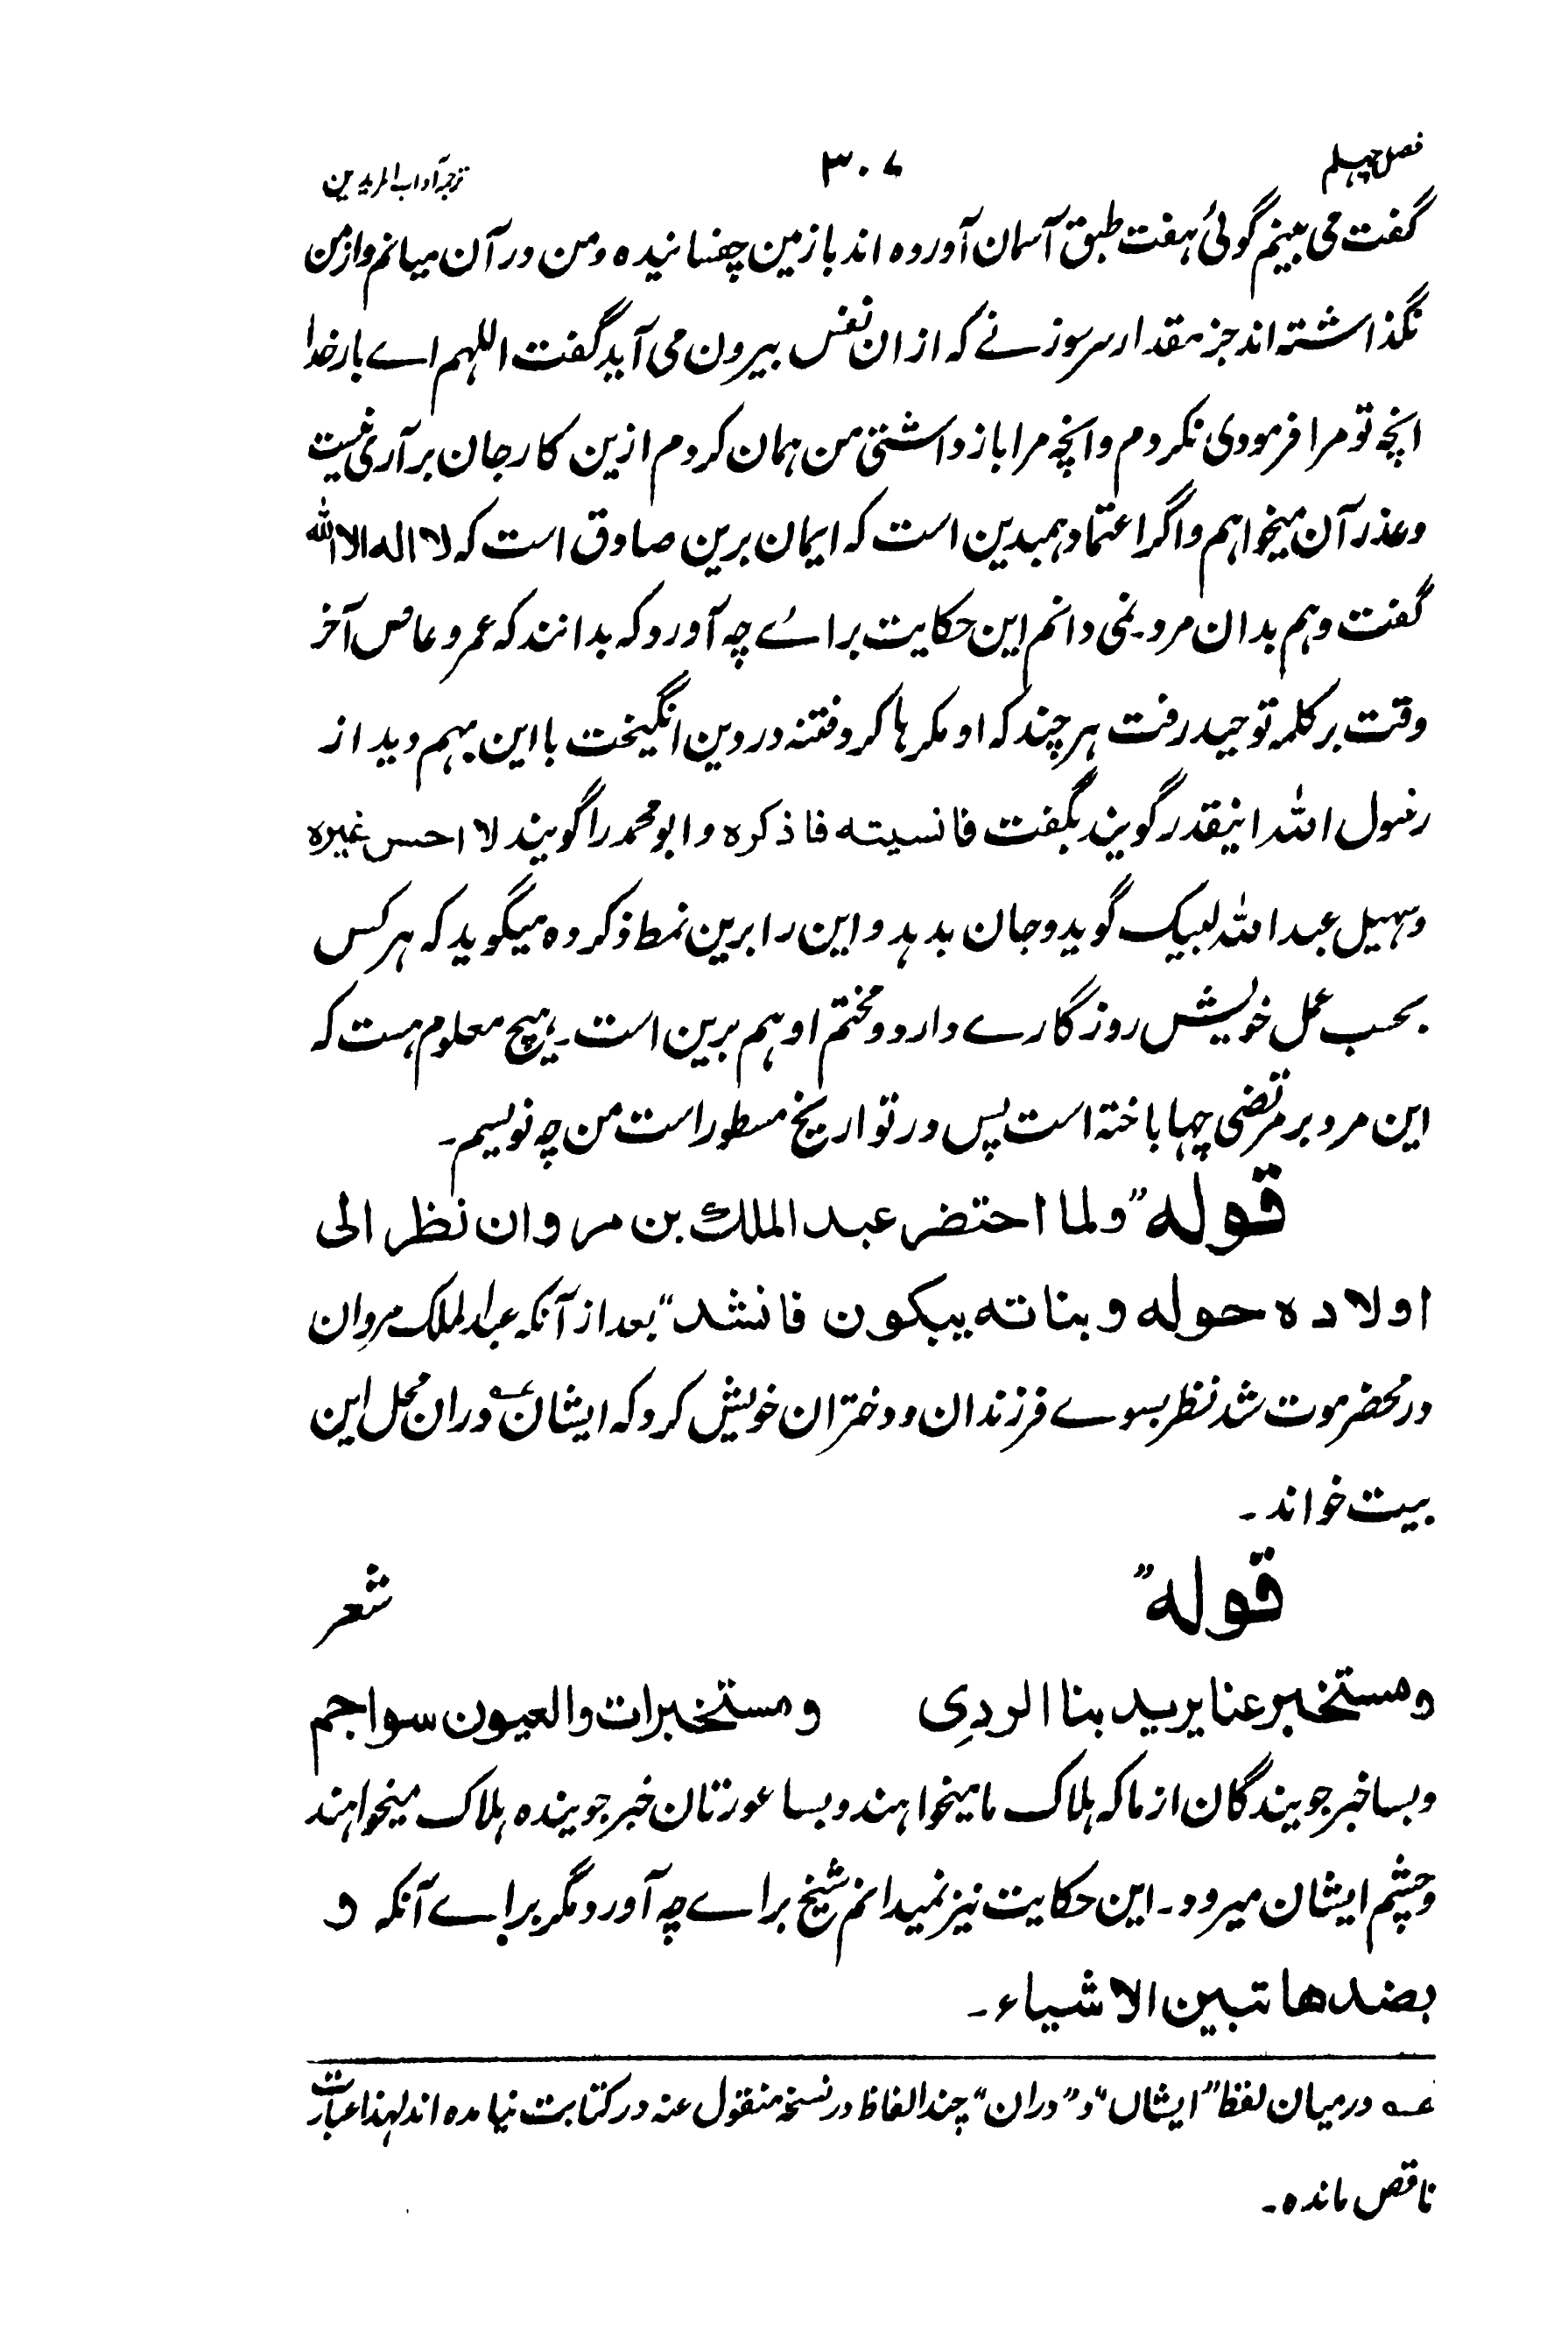 فصل چہلم ۳۰۷ ترجمہ آداب المریدین
گفت می بینم گوئی ہفت طبق آسمان آوردہ اند با زمین چفسانیدہ و من در آن میانم و از من
نگذاشتہ اند جز مقدار سر سوزنے کہ ازان نفس بیرون می آید گفت اللہم اے بار خدا
انچہ تو مرا فرمودی نکردم و انچہ مرا باز داشتی من ہمان کردم ازین کار جان برآری نیست
و عذر آن میخواہم و اگر اعتماد ہمبدین است کہ ایمان برین صادق است کہ لا الہ الا اللہ
گفت و ہم بدان مرد۔ نمی دانم این حکایت براے چہ آورد کہ بدانند کہ عمرو عاص آخر
وقت بر کلمہ توحید رفت ہر چند کہ او مکرہا کرد و فتنہ در دین انگیخت با این ہمہم دید از
رسول اللہ اینقدر گویند بگفت فانسیتہ فاذکرہ و ابو محمد را گویند لا احس غیرہ
و سہیل عبد اللہ لبیک گوید و جان بدہد و این را برین نمط ذکر دہ میگوید کہ ہر کس
بحسب عمل خویش روزگارے دارد و مختم او ہم برین است۔ ہیچ معلوم ہست کہ
این مرد بر مرتضی چہا باختہ است پس در تواریخ مسطور است من چہ نویسم۔
قولہ ”ولما احتضر عبد الملك بن مروان نظر الی
اولادہ حولہ و بناتہ یبکون فانشد“ بعد از آنکہ عبد الملک مروان
در محضر موت شد نظر بسوے فرزندان و دختران خویش کرد کہ ایشان عـہ دران محل این
بیت خواند۔
قولہ ” شعر
ومستخبر عنا یرید بنا الردی ومستخبرات والعیون سواجم
و بسا خبر جویندگان از ما کہ ہلاک ما میخواہند و بسا عورتان خبر جویندہ ہلاک میخواہند
و چشم ایشان میرود۔ این حکایت نیز نمیدانم شیخ براے چہ آورد مگر براے آنکہ و
بضدها تتبین الاشیاء۔
عـہ درمیان لفظ ”ایشاں“ و ”دران“ چند الفاظ در نسخہ منقول عنہ در کتابت نیامدہ اند لہذا عبارت
ناقص ماندہ۔